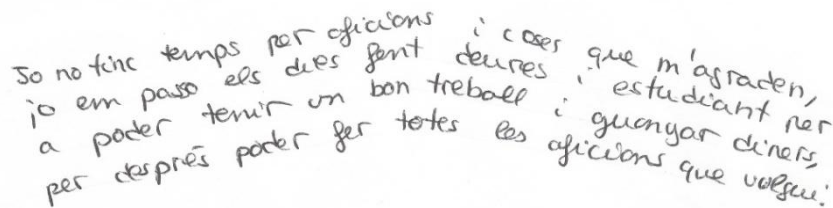 Jo no tinc temps per aficions i coses que m'agraden,
jo em passo els dies fent deures i estudiant per
a poder tenir un bon treball i guanyar diners,
per després poder fer totes les aficions que volgui.